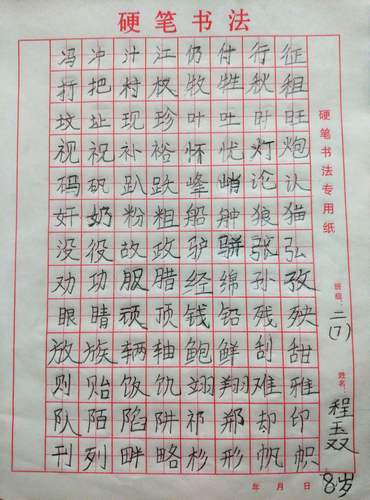 硬笔书法
冯冲汁江仍付行征
打把村权牧牲秋租
坟址现珍叶吐时旺
视祝补裕怀忧灯炮
码矾趴趺峰峭论认
奸奶粉粗船舯狼猫
没役故政驴骈张弘
劝功服腊经绵孙孜
眼睛顽顶钱铅残殃
放族辆轴鲍鲜刮甜
则贻饭饥翊翔难雅
队陌陷阱祁郑却印
刊列畔略杉形帆帜
硬笔书法专用纸
班级:
二(7)
姓名:
程玉双
8岁
年 月 日